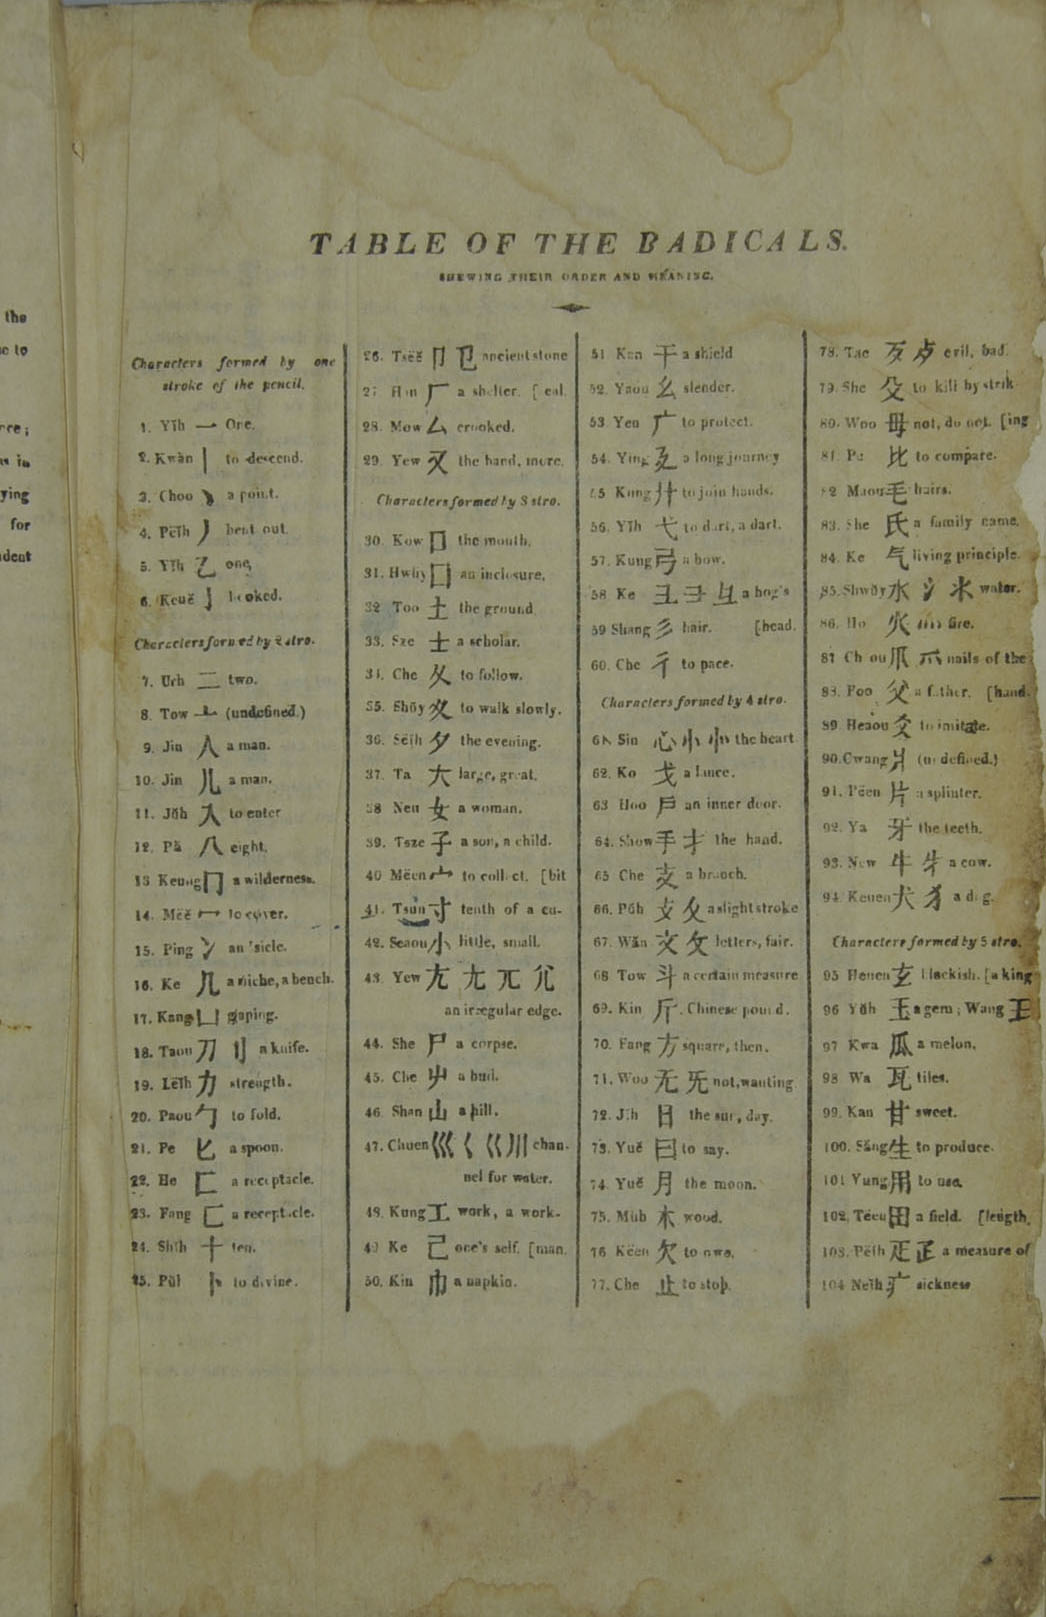 the
to
ying
for
TABLE OF THE RADICALS.
SHEWING THEIR ORDER AND MEANING.
Characters formed by one
stroke of the pencil.
1. Yĭh 一 One.
2. Kwăn 丨 to descend.
3. Choo 丶 a point.
4. Pĕĭh 丿 bent out.
5. Yĭh 乙 one,
6. Keuĕ 亅 hooked.
Characters formed by 2 stro.
7. Urh 二 two.
8. Tow 亠 (undefined.)
9. Jin 人 a man.
10. Jin 儿 a man.
11. Jŏh 入 to enter
12. Pă 八 eight.
13 Keung 冂 a wilderness.
14. Mĕĕ 冖 to cover.
15. Ping 冫 an 'sicle.
16. Ke 几 a niche, a bench.
17. Kang 凵 gaping.
18. Taou 刀 刂 a knife.
19. Lĕĭh 力 strength.
20. Paou 勹 to fold.
21. Pe 匕 a spoon.
22. He 匚 a receptacle.
23. Fang 匸 a receptacle.
24. Shĭh 十 ten.
25. Pŭh 卜 to divine.
26. Tsĕĕ 卩 㔾 ancient stone
27 Han 厂 a shelter. [eal.
28. Mow 厶 crooked.
29. Yew 又 the hand, more.
Characters formed by 3 stro.
30. Kow 口 the mouth.
31. Hwŭy 囗 an inclosure.
32 Too 土 the ground
33. Sze 士 a scholar.
34. Che 夂 to follow.
35. Shŭy 夊 to walk slowly.
36. Sĕĭh 夕 the evening.
37. Ta 大 large, great.
38 Neu 女 a woman.
39. Tsze 子 a son, a child.
40 Mĕen 宀 to collect. [bit
41. Tsun 寸 tenth of a cu-
42. Seaou 小 little, small.
43. Yew 尢 尣 兀 尣
an irregular edge.
44. She 尸 a corpse.
45. Che 屮 a bud.
46 Shan 山 a hill.
47. Chuen 巛 く 巜 川 chan-
nel for water.
48. Kung 工 work, a work-
49 Ke 己 one's self. [man.
50. Kin 巾 a napkin.
51 Kan 干 a shield
52. Yaou 幺 slender.
53 Yen 广 to protect.
54. Ying 廴 a long journey
55 Kung 廾 to join hands.
56. Yĭh 弋 to dart, a dart.
57. Kung 弓 a bow.
58 Ke 彐 彑 a hog's
59 Shang 彡 hair. [head.
60. Che 彳 to pace.
Characters formed by 4 stro.
61. Sin 心 小 忄 the heart
62. Ko 戈 a lance.
63 Hoo 戶 an inner door.
64. Show 手 扌 the hand.
65 Che 支 a branch.
66. Pŭh 攴 攵 a slight stroke
67. Wăn 文 攵 letters, fair.
68 Tow 斗 a certain measure
69. Kin 斤 Chinese pound.
70. Fang 方 square, then.
71. Woo 无 旡 not, wanting
72. Jĭh 日 the sun, day.
73. Yuĕ 曰 to say.
74. Yuĕ 月 the moon.
75. Mŭh 木 wood.
76 Kĕen 欠 to owe.
77. Che 止 to stop.
78. Tae 歹 歺 evil, bad.
79. She 殳 to kill by strik-
80. Woo 毋 not, do not. [ing
81. Pe 比 to compare.
82 Maou 毛 hairs.
83. She 氏 a family name.
84. Ke 气 living principle.
85. Shwŭy 水 氵 氺 water.
86. Ho 火 灬 fire.
87 Chaou 爪 爫 nails of the
88. Foo 父 a father. [hand.
89 Heaou 爻 to imitate.
90. Cwang 爿 (undefined.)
91. Pĕen 片 a splinter.
92. Ya 牙 the teeth.
93. New 牛 牜 a cow.
94. Keuen 犬 犭 a dog.
Characters formed by 5 stro.
95 Heuen 玄 blackish. [a king
96 Yŭh 玉 a gem; Wang 王
97 Kwa 瓜 a melon.
98 Wa 瓦 tiles.
99. Kan 甘 sweet.
100. Săng 生 to produce.
101 Yung 用 to use.
102. Tĕen 田 a field. [length.
103. Pĕĭh 疋 𤴔 a measure of
104 Neĭh 疒 sickness